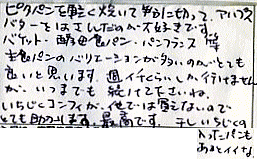 ピタパンを軽く焼いて半分に切って、アルプス
バターをはさんだのが大好きです。
バケット・酵母食パン・パンフランス 等
主食パンのバリエーションが多いのがとても
良いと思います。週イチくらいしか行けません
が、いつまでも続けて下さいね。
いちじくコンフィが、他では買えないので
とても助かります。最高です。干しいちじくの
入ったパンも
あるとイイナ。